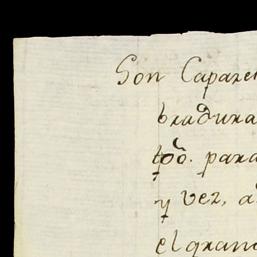 Son Caparen
bradura
todo. para
y vez, a
el gran